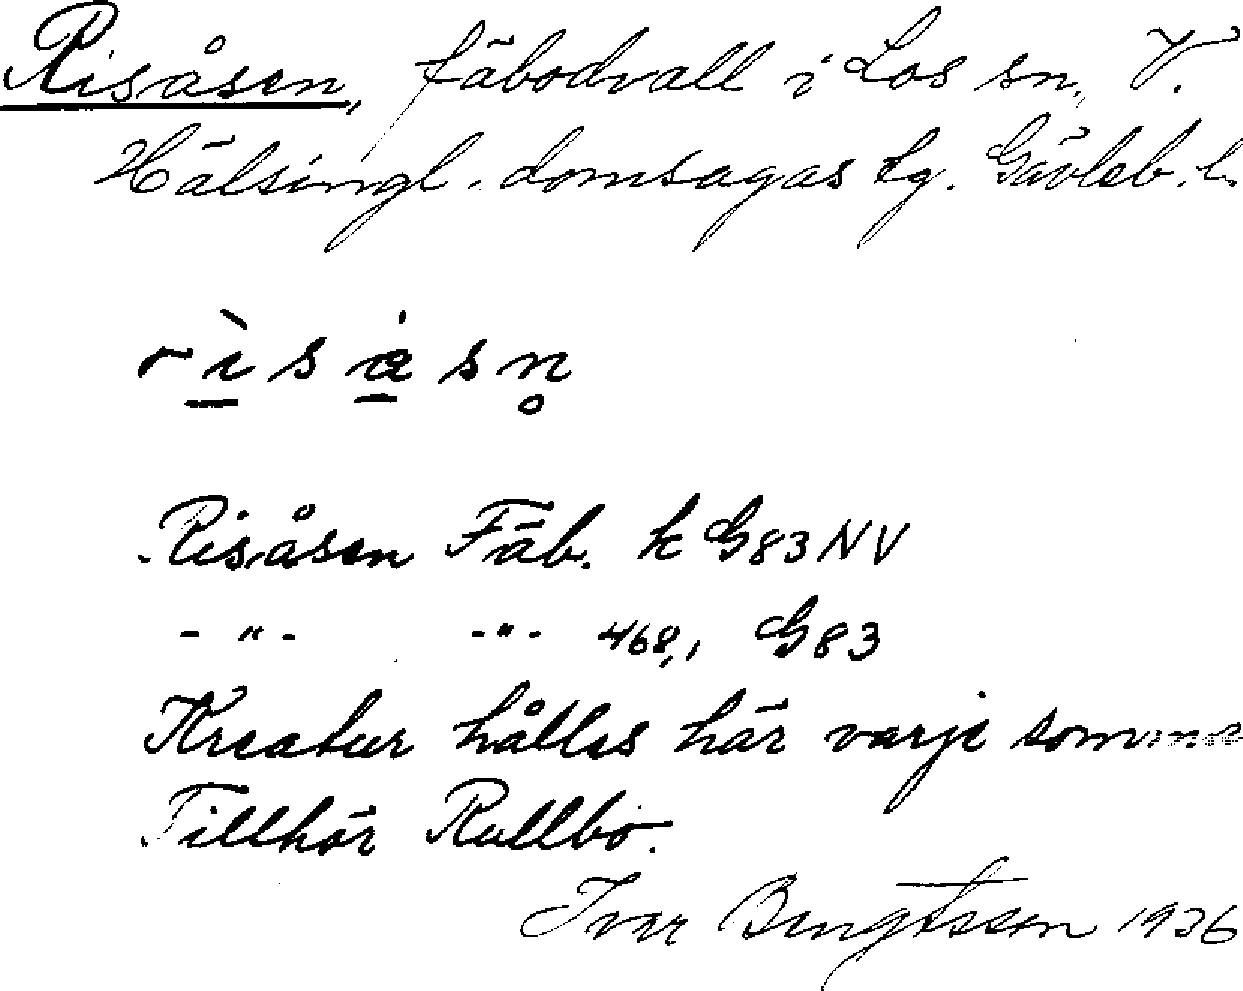 Risåsen, fäbodvall i Los sn, V.
Hälsingl. domsagas tg. Gävleb. l.
Risåsen Fäb. k G83NV
- " - - " - 468,1 G83
Kreatur hålles här varje somma
Tillhör Rullbo.
Ivar Bengtsson 1936